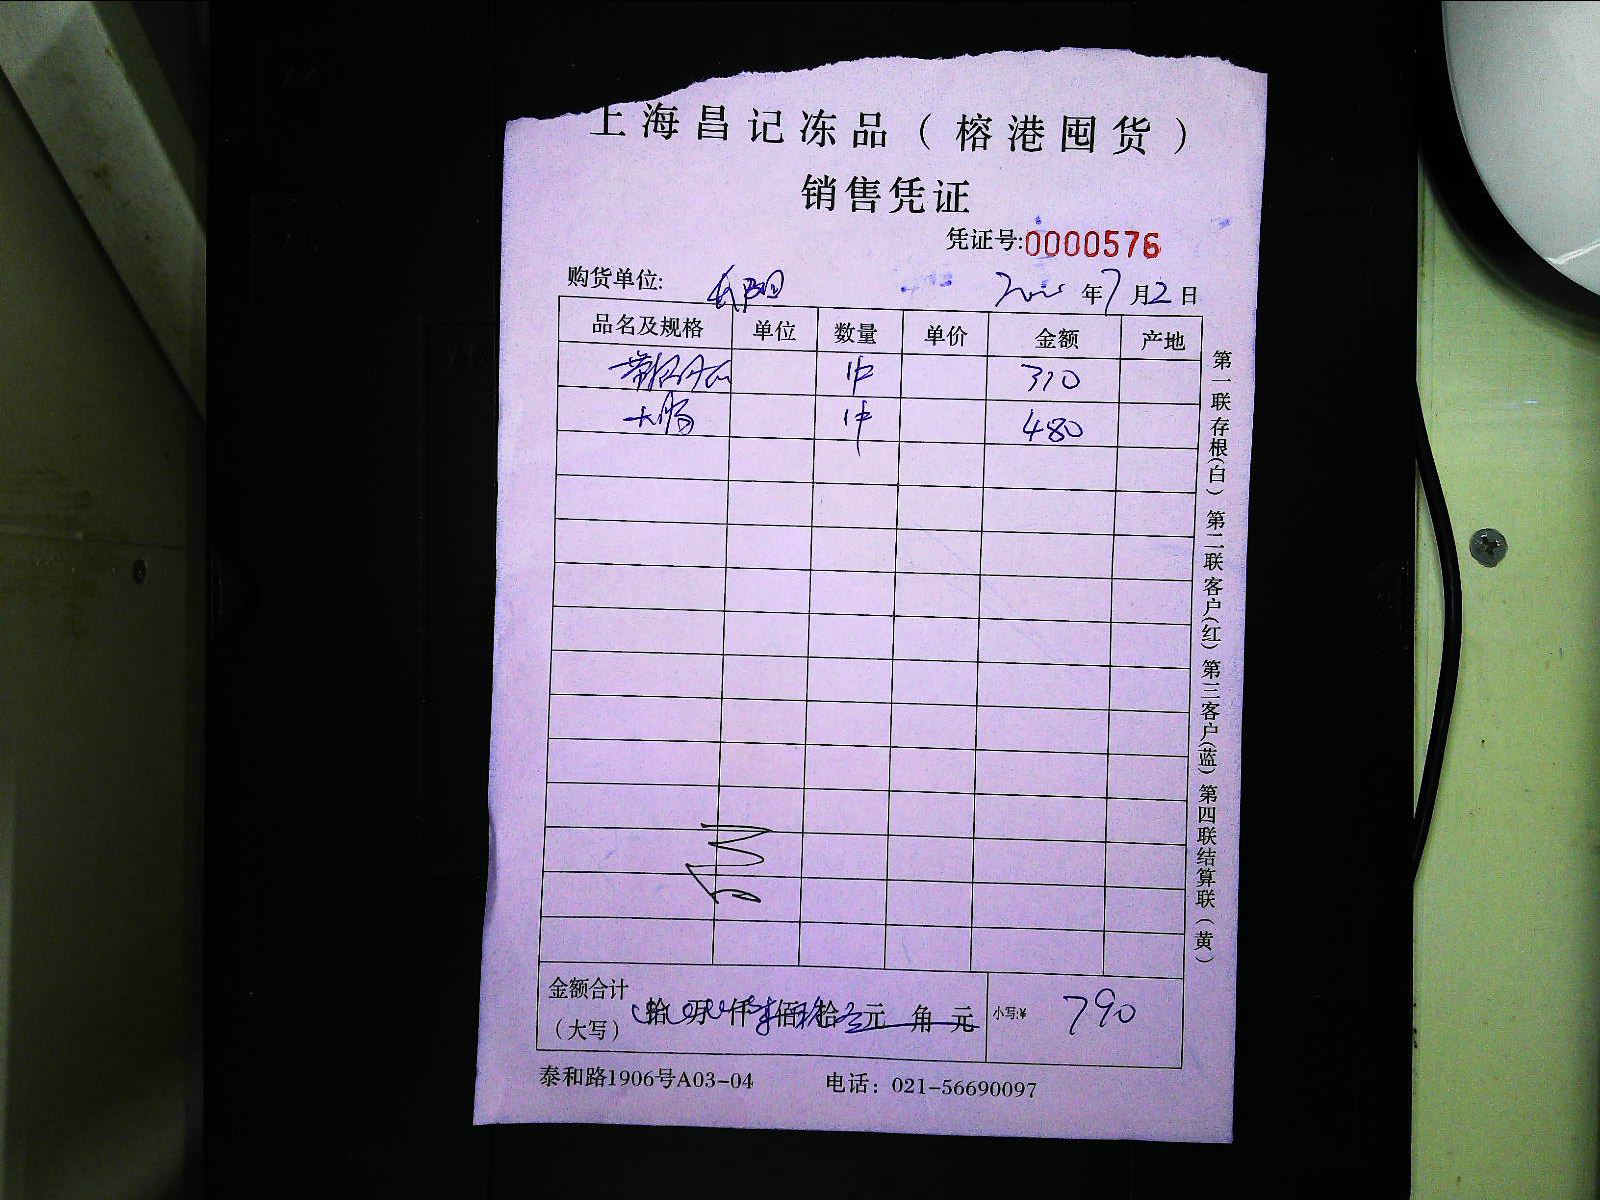 上海昌记冻品（榕港囤货）
销售凭证
凭证号:0000576
购货单位: 年7月2日
品名及规格 单位 数量 单价 金额 产地
1件 310
大肠 1件 480
金额合计（大写） 拾 万 仟 佰 拾 元 角 元 小写:¥ 790
泰和路1906号A03-04 电话：021-56690097
第一联存根(白) 第二联客户(红) 第三客户(蓝) 第四联结算联(黄)